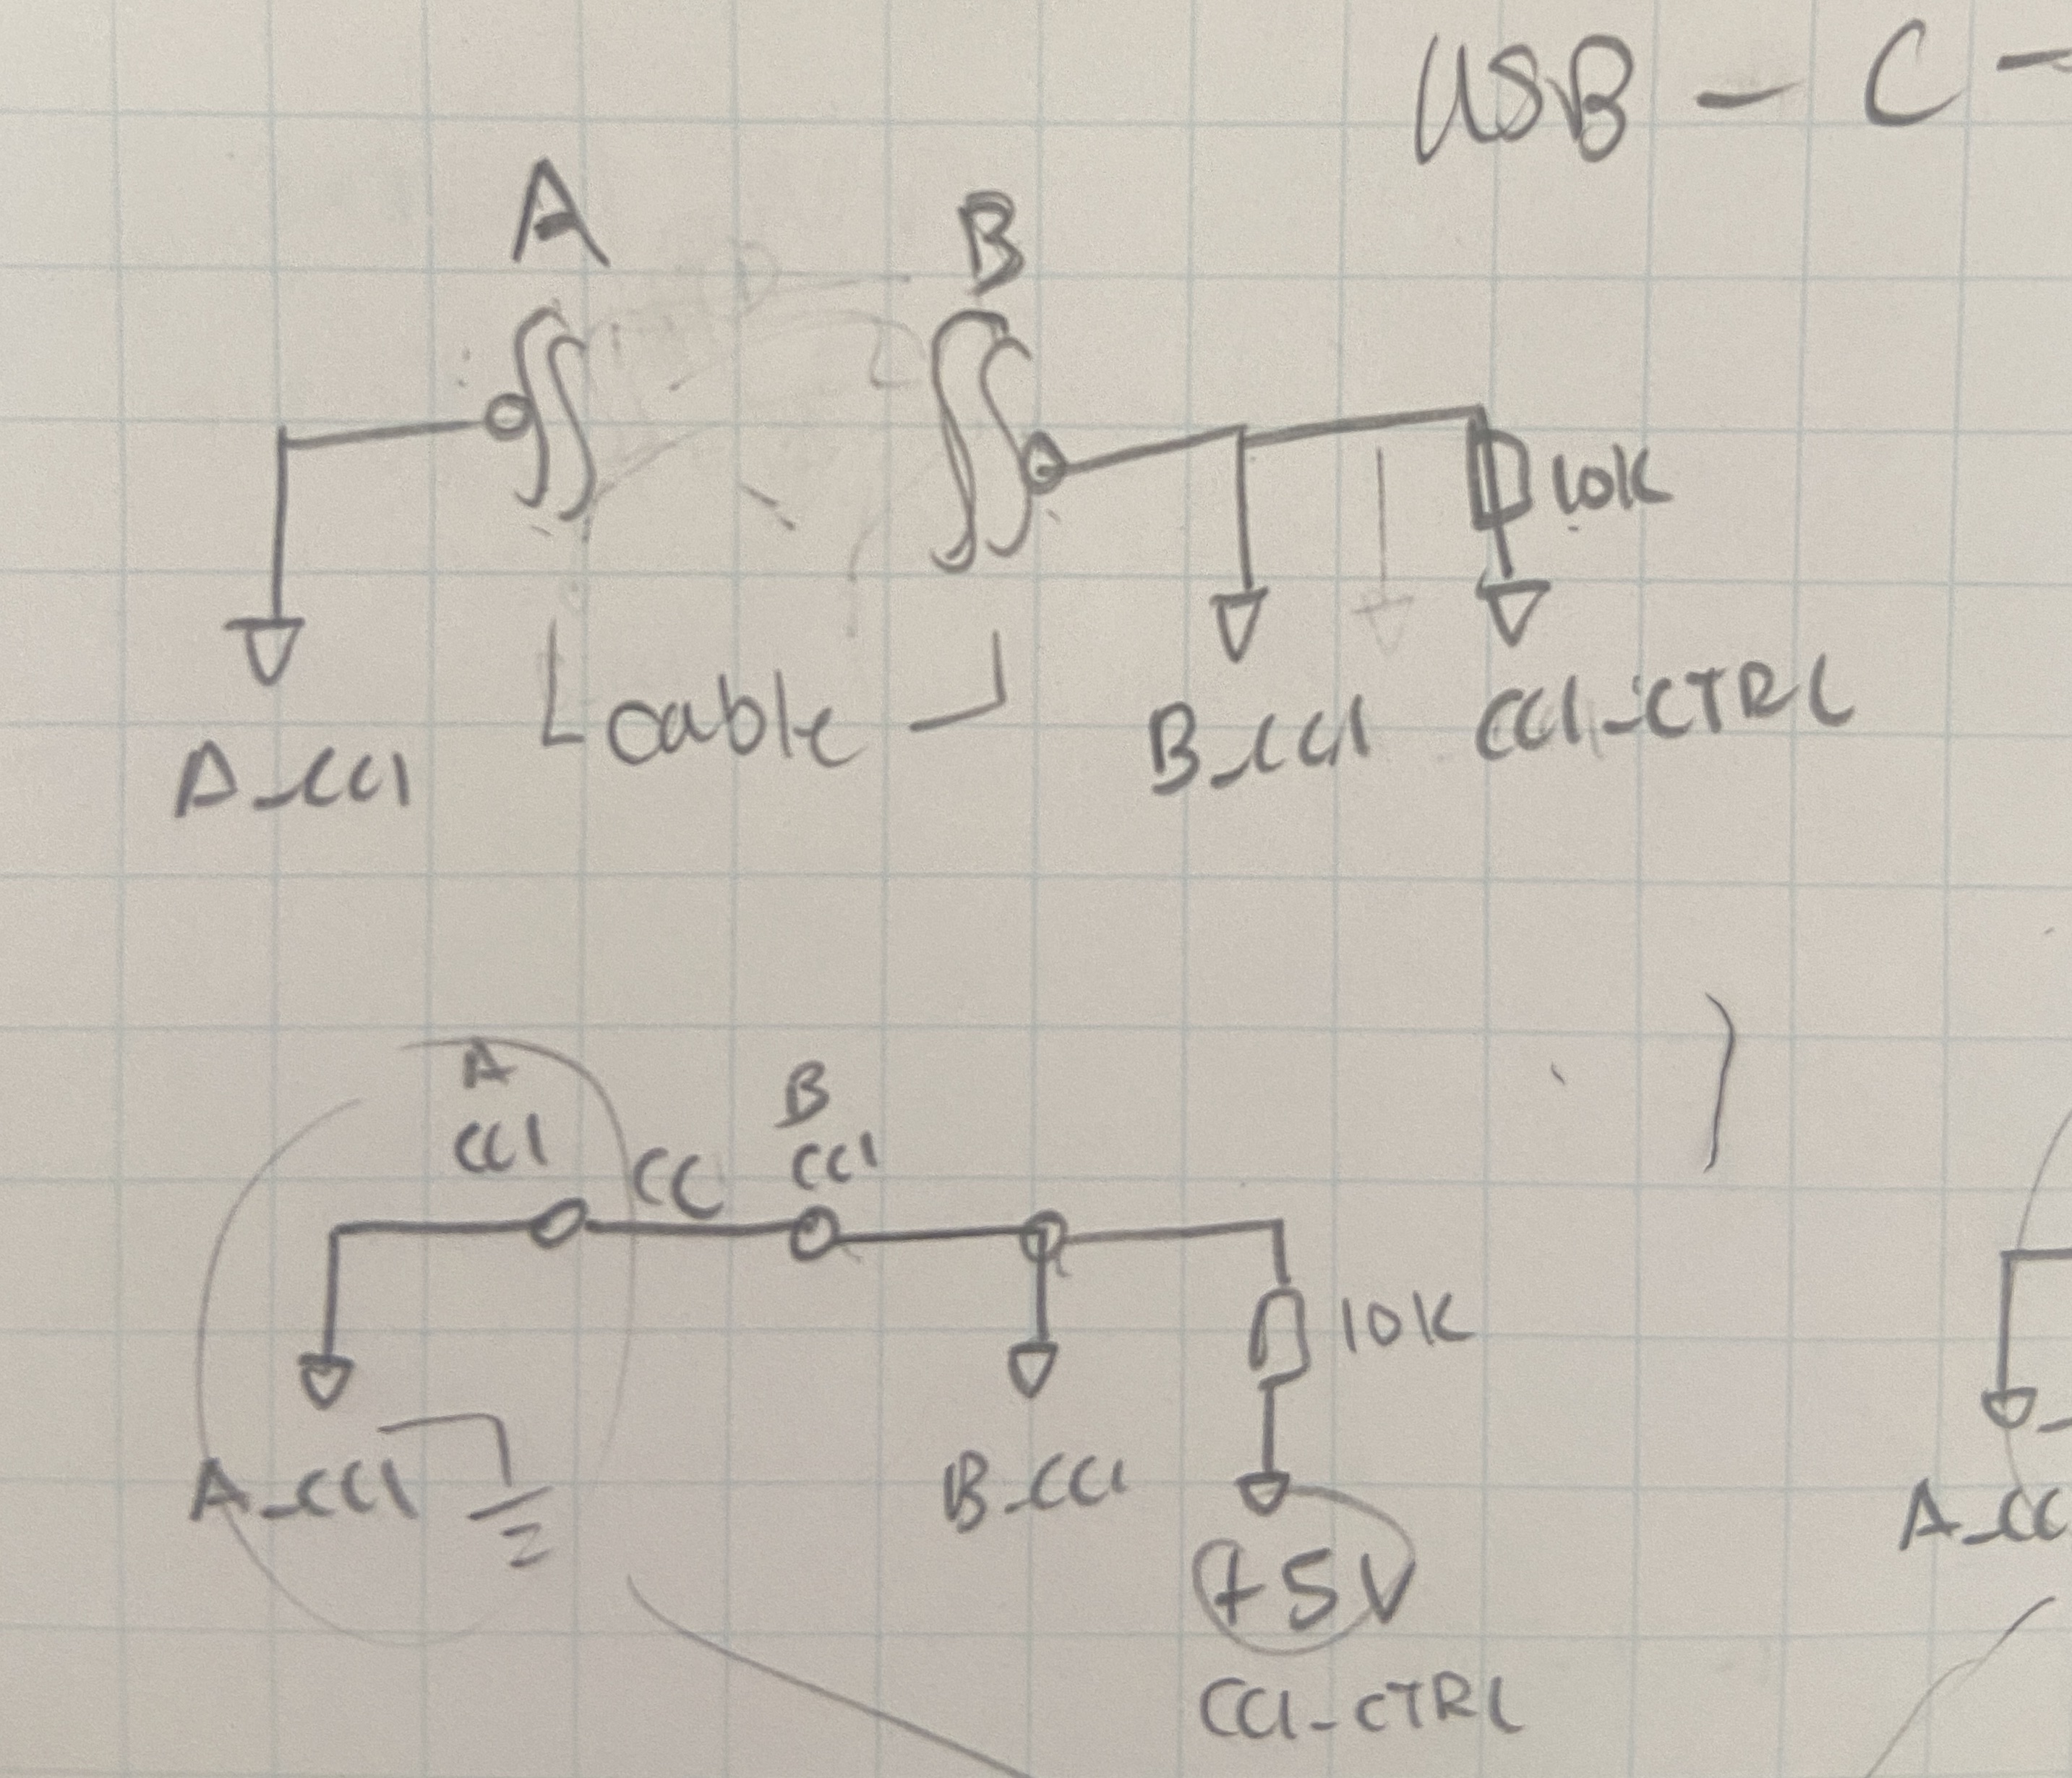 USB - C -
A
B
10K
A_CC1
cable
B_CC1
CC1_CTRL
A
CC1
CC
B
CC1
10K
A_CC1
B_CC1
+5V
CC1_CTRL
A_CC